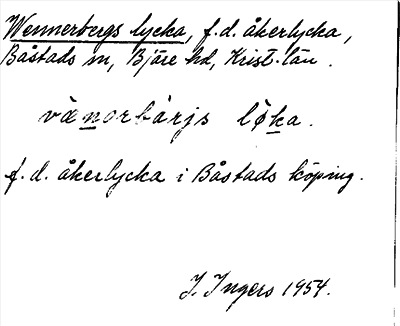 Wennerbergs lycka, f.d. åkerlycka,
Båstads sn, Bjäre hd, Krist. län.
vä̀norbärjs løka.
f.d. åkerlycka i Båstads köping.
I. Ingers 1954.